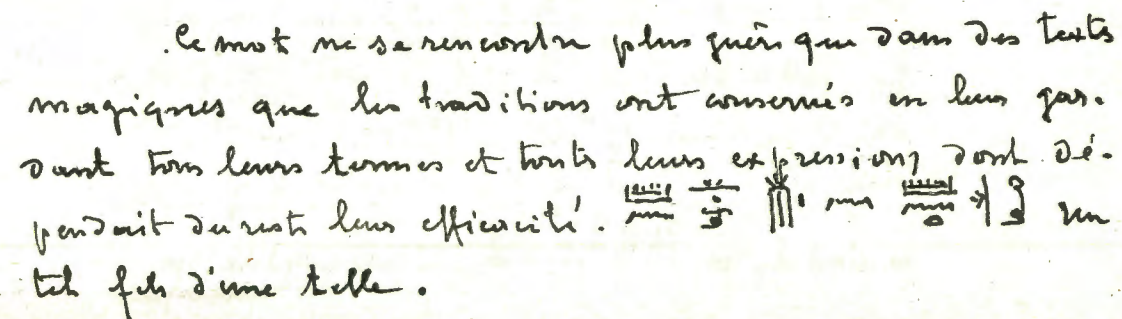 Ce mot ne se rencontre plus guère que dans des textes
magiques que les traditions ont conservés en leur gar-
dant tous leurs termes et toutes leurs expressions dont dé-
pendait du reste leur efficacité. un
tel fils d'une telle.